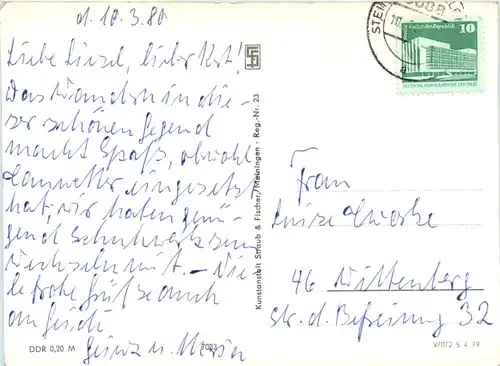 d. 10.3.80
Liebe Liesel, lieber Kurt!
Das Wandern in die-
ser schönen Gegend
macht Spaß, obwohl
Tauwetter eingesetzt
hat, wir haben genü-
gend Schuhwerk zum
Wechseln mit. – Vie-
le frohe Grüße auch
an Heidi
Heinz u.
DDR 0,20 M
7023
Kunstanstalt Straub & Fischer, Meiningen · Reg.-Nr. 23
STEIN
Palast der Republik
10
DEUTSCHE DEMOKRATISCHE REPUBLIK
Frau
Luise
46 Wittenberg
Str. d. Befreiung 32
V/11/2 S 4 79